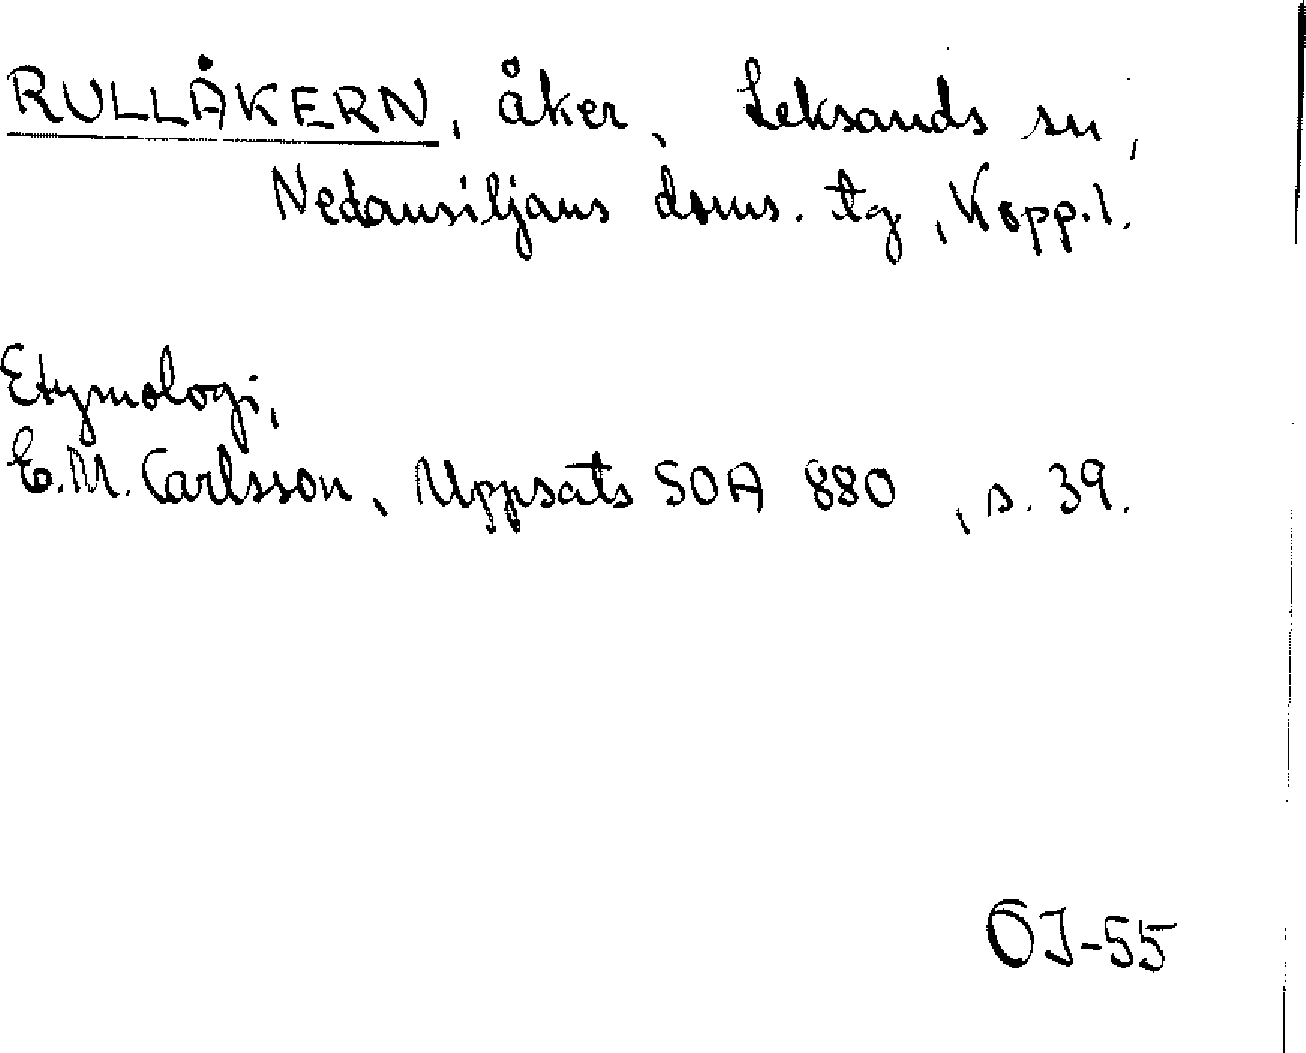 RULLÅKERN, åker, Leksands sn,
Nedansiljans doms. tg, Kopp.l.
Etymologi,
E.M. Carlsson, Uppsats SOA 880, s. 39.
OJ-55